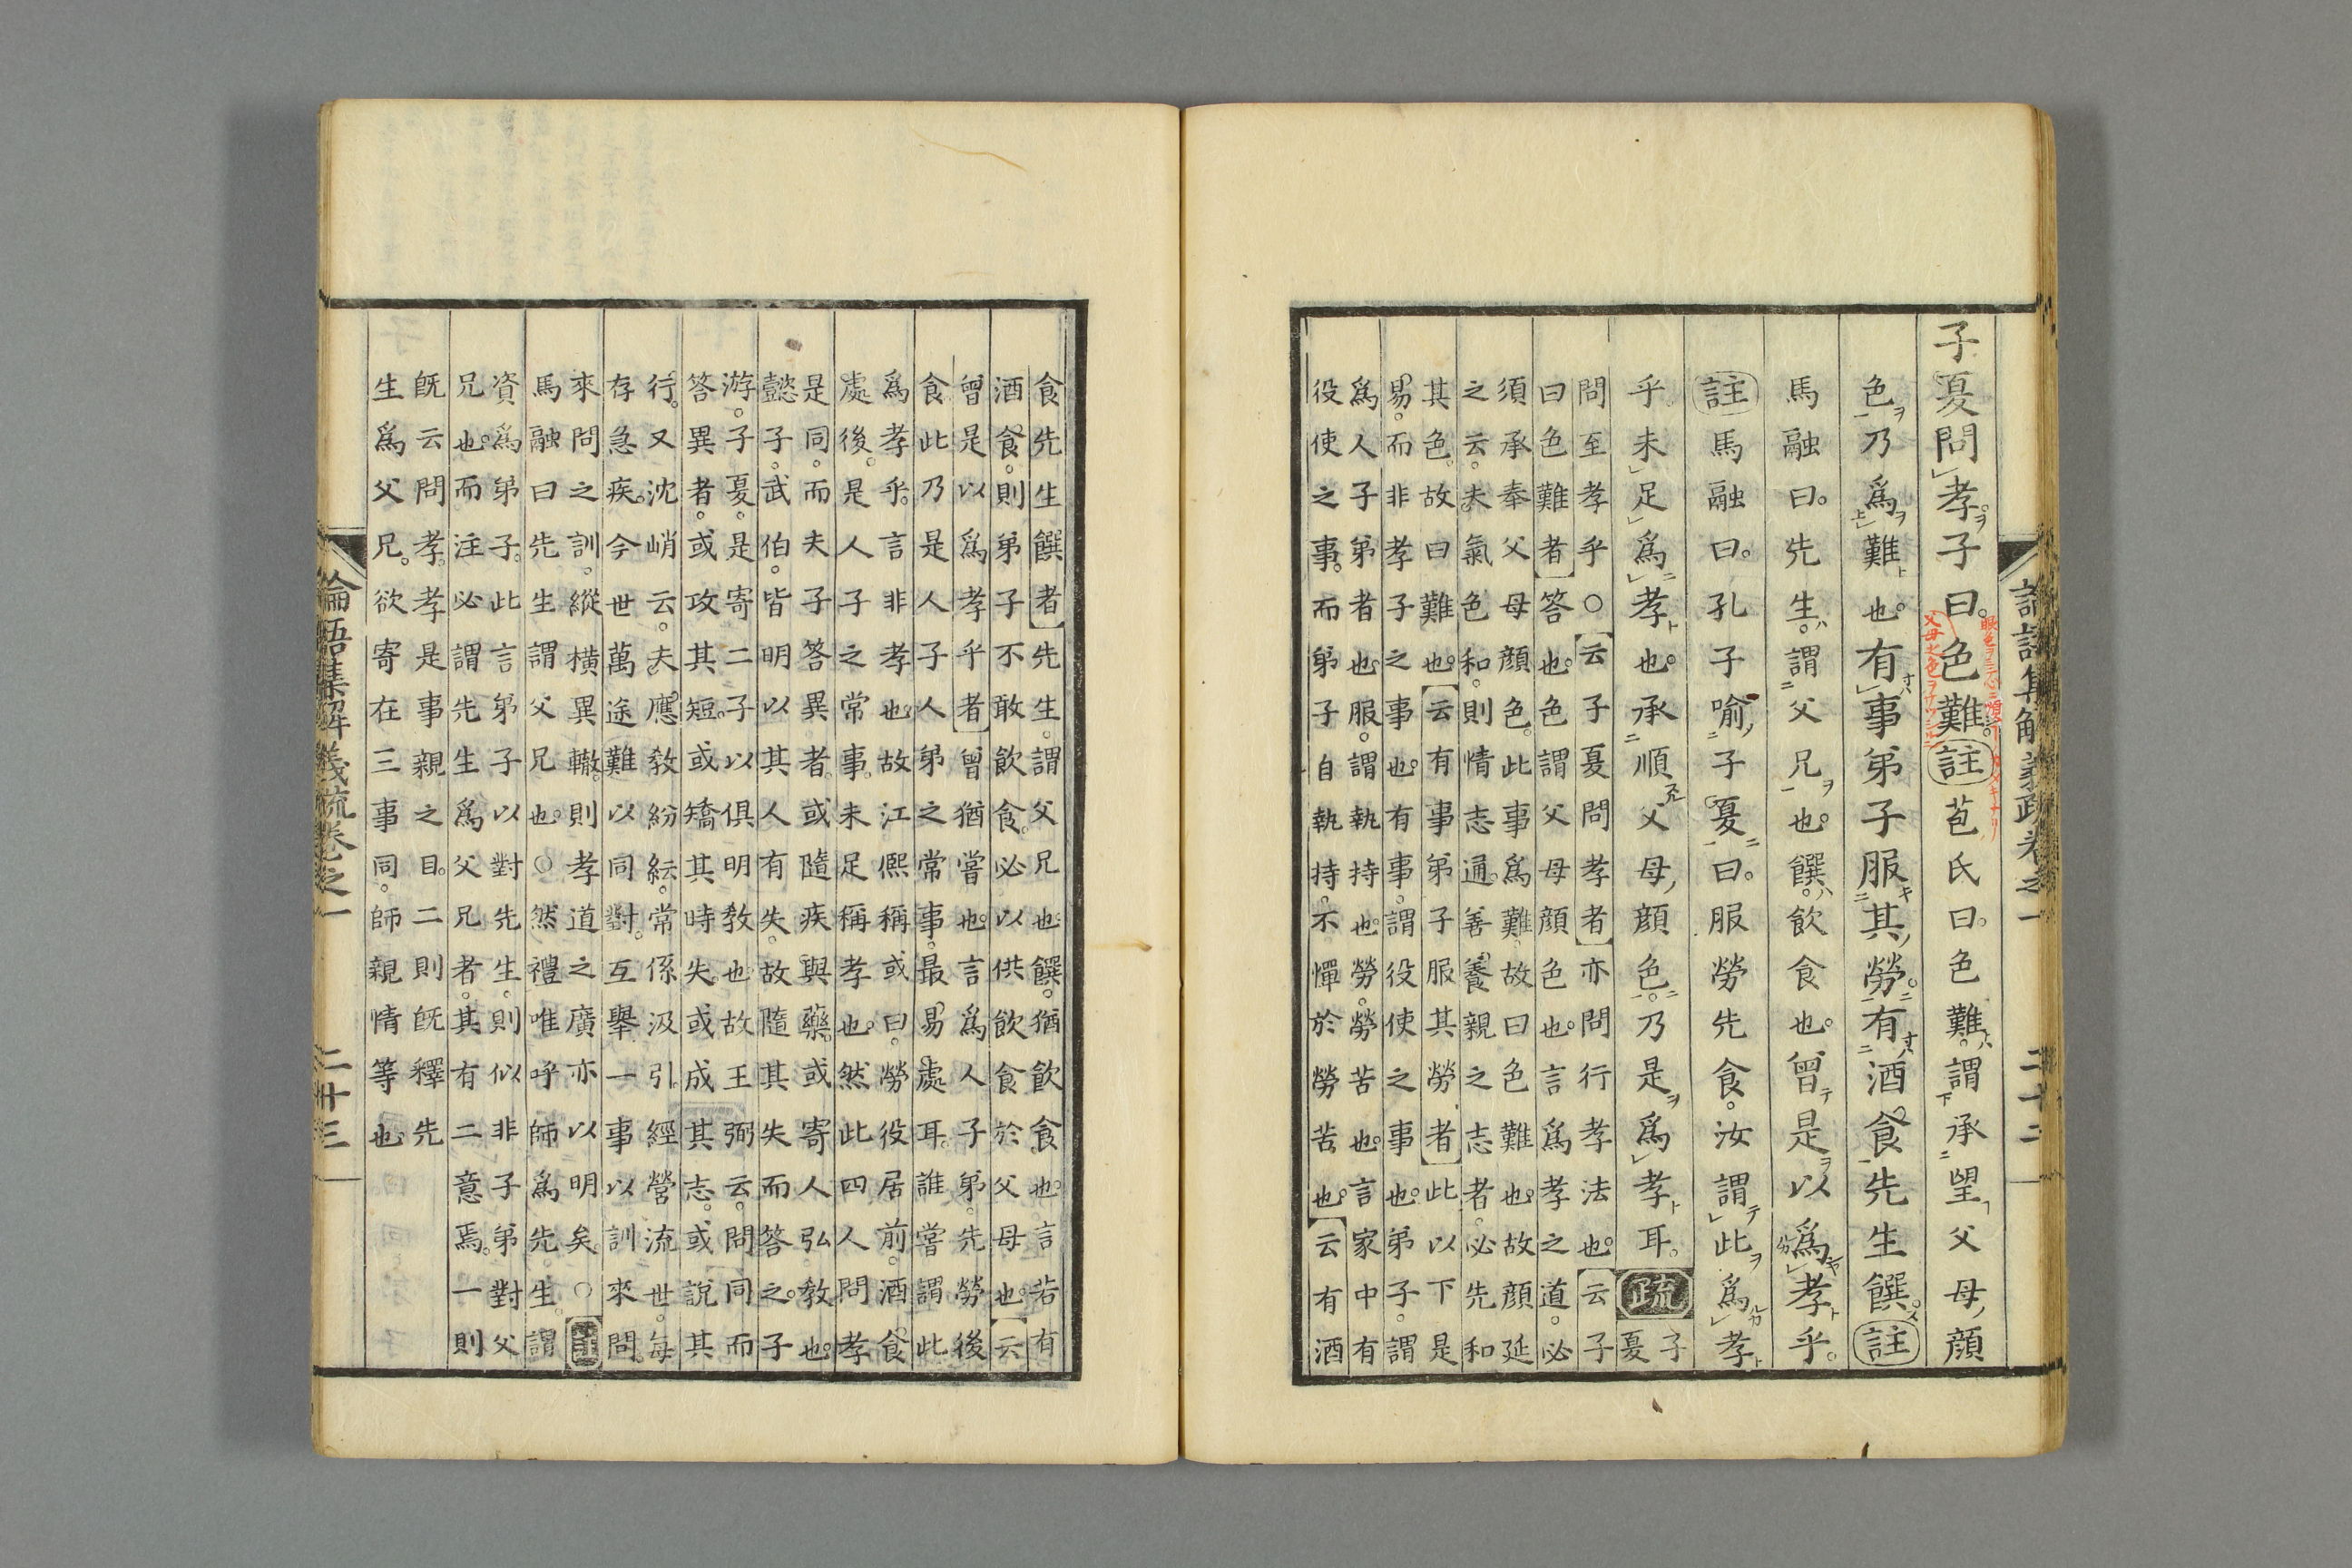 論語集解義疏卷之一 二十二
子夏問孝子曰。色難。註苞氏曰。色難。謂承望父母顔
色乃爲難也。有事弟子服其勞。有酒食先生饌註
馬融曰。先生。謂父兄也。饌。飲食也。曾是以爲孝乎。
註馬融曰。孔子喻子夏曰。服勞先食。汝謂此爲孝
乎。未足爲孝也。承順父母顔色。乃是爲孝耳。疏子夏
問至孝乎○云子夏問孝者亦問行孝法也。云子
曰色難者答也。色謂父母顔色也。言爲孝之道。必
須承奉父母顔色。此事爲難。故曰色難也。故顔延
之云。夫氣色和。則情志通。善養親之志者。必先和
其色。故曰難也。云有事弟子服其勞者此以下是
易。而非孝子之事也。有事。謂役使之事也。弟子。謂
爲人子弟者也。服。謂執持也。勞。勞苦也。言家中有
役使之事。而弟子自執持。不憚於勞苦也。云有酒
食先生饌者先生。謂父兄也。饌。猶飲食也。言若有
酒食。則弟子不敢飲食。必以供飲食於父母也。云
曾是以爲孝乎者曾猶嘗也。言爲人子弟。先勞後
食。此乃是人子人弟之常事。最易處耳。誰嘗謂此
爲孝乎。言非孝也。故江熙稱或曰。勞役居前。酒食
處後。是人子之常事。未足稱孝也。然此四人問孝
是同。而夫子答異者。或隨疾與藥。或寄人弘教也。
懿子。武伯。皆明以其人有失。故隨其失而答之。子
游。子夏。是寄二子以俱明教也。故王弼云。問同而
答異者。或攻其短。或矯其時失。或成其志。或說其
行。又沈峭云。夫應教紛紜。常係汲引。經營流世。每
存急疾。今世萬途難以同對。互舉一事以訓來問。
來問之訓。縱橫異轍。則孝道之廣亦以明矣。○註
馬融曰先生謂父兄也。○然禮唯呼師爲先生。謂
資爲弟子。此言弟子以對先生。則似非子弟對父
兄也。而注必謂先生爲父兄者。其有二意焉。一則
既云問孝。孝是事親之目。二則既釋先
生爲父兄。欲寄在三事同。師親情等也。
論語集解義疏卷之一 二十三